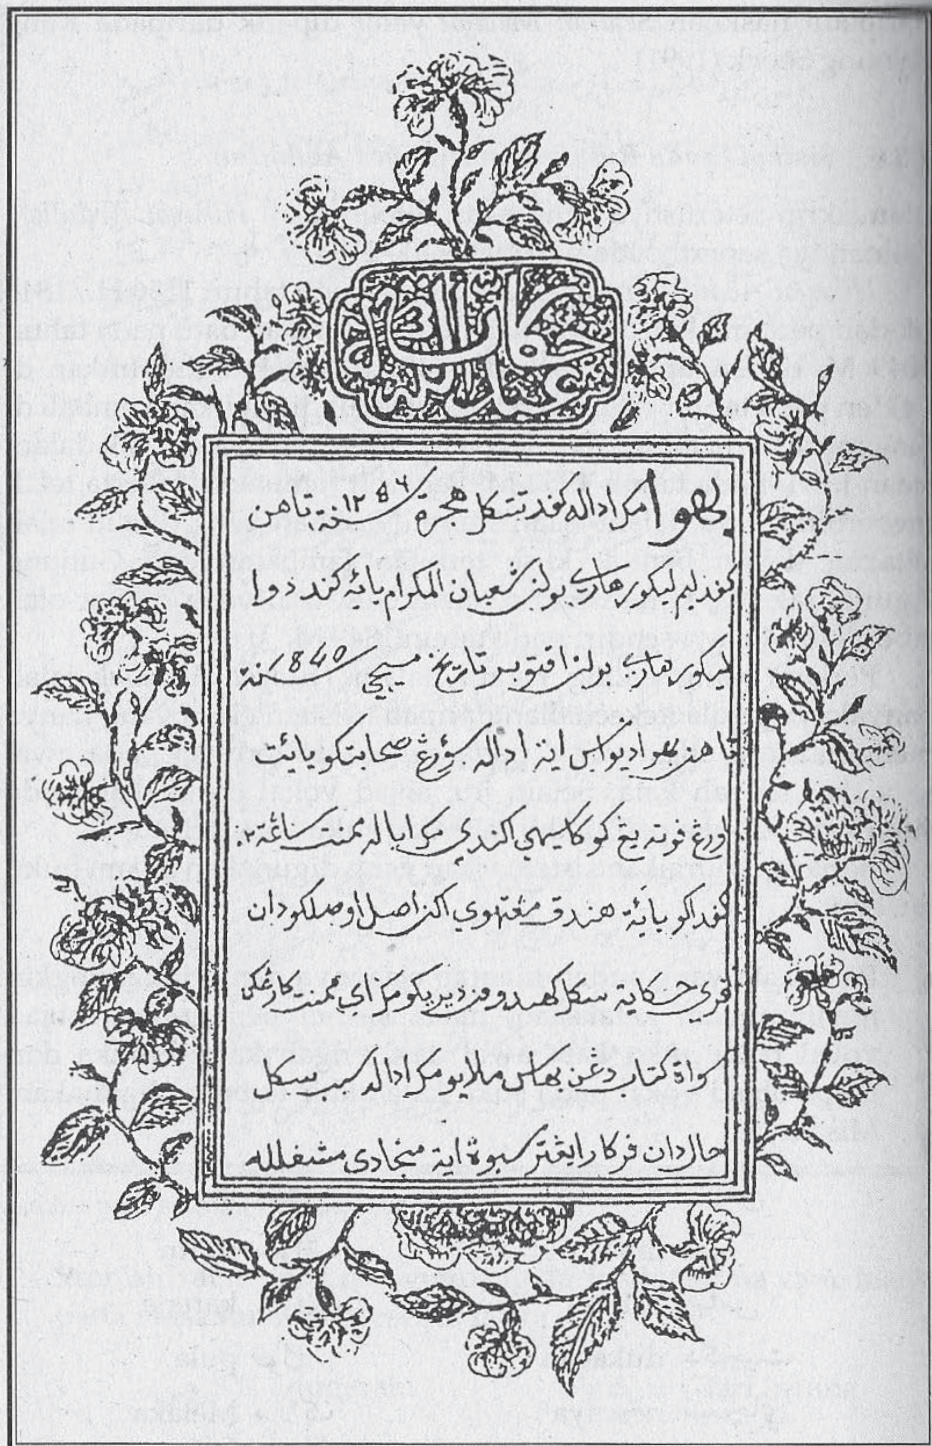 حكاية عبدالله
بهوا مك اداله كفد تتكل هجرة سنة ١٢٥٦ تاهن
كفد ليم ليكور هاري بولن شعبان المكرم يائة كفد دوا
ليكور هاري بولن اقتوبر تاريخ مسيحي سنة 1840
تاهن بهوا ديواس اين اداله سؤرڠ صحابتكو يائت
اورڠ فوته يڠ كو كاسيهي اكندي مك اياله ممنت ساڠة٢
كفداكو يائة هندق مڠتهوي اكن اصل اوصلكو دان
فري حكاية سكل كهيدوفن ديريكو مك اي ممنت كارڠكن
سواة كتاب دڠن بهاس ملايو مك اداله سبب سكل
حال دان فركار ايڠ ترسبوة ايت منجادي مشغلله